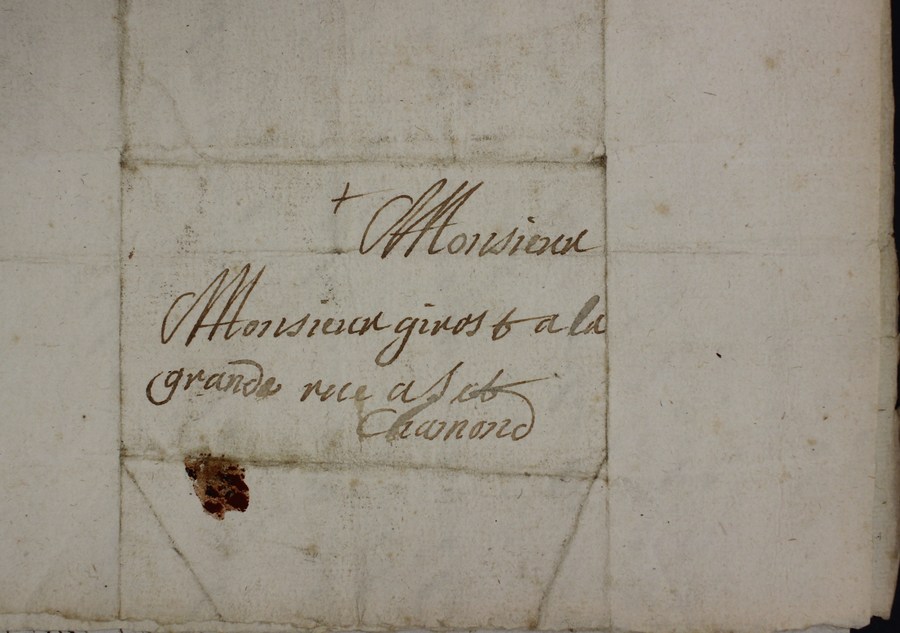 + Monsieur
Monsieur girost a la
grande rue a St
Chamond